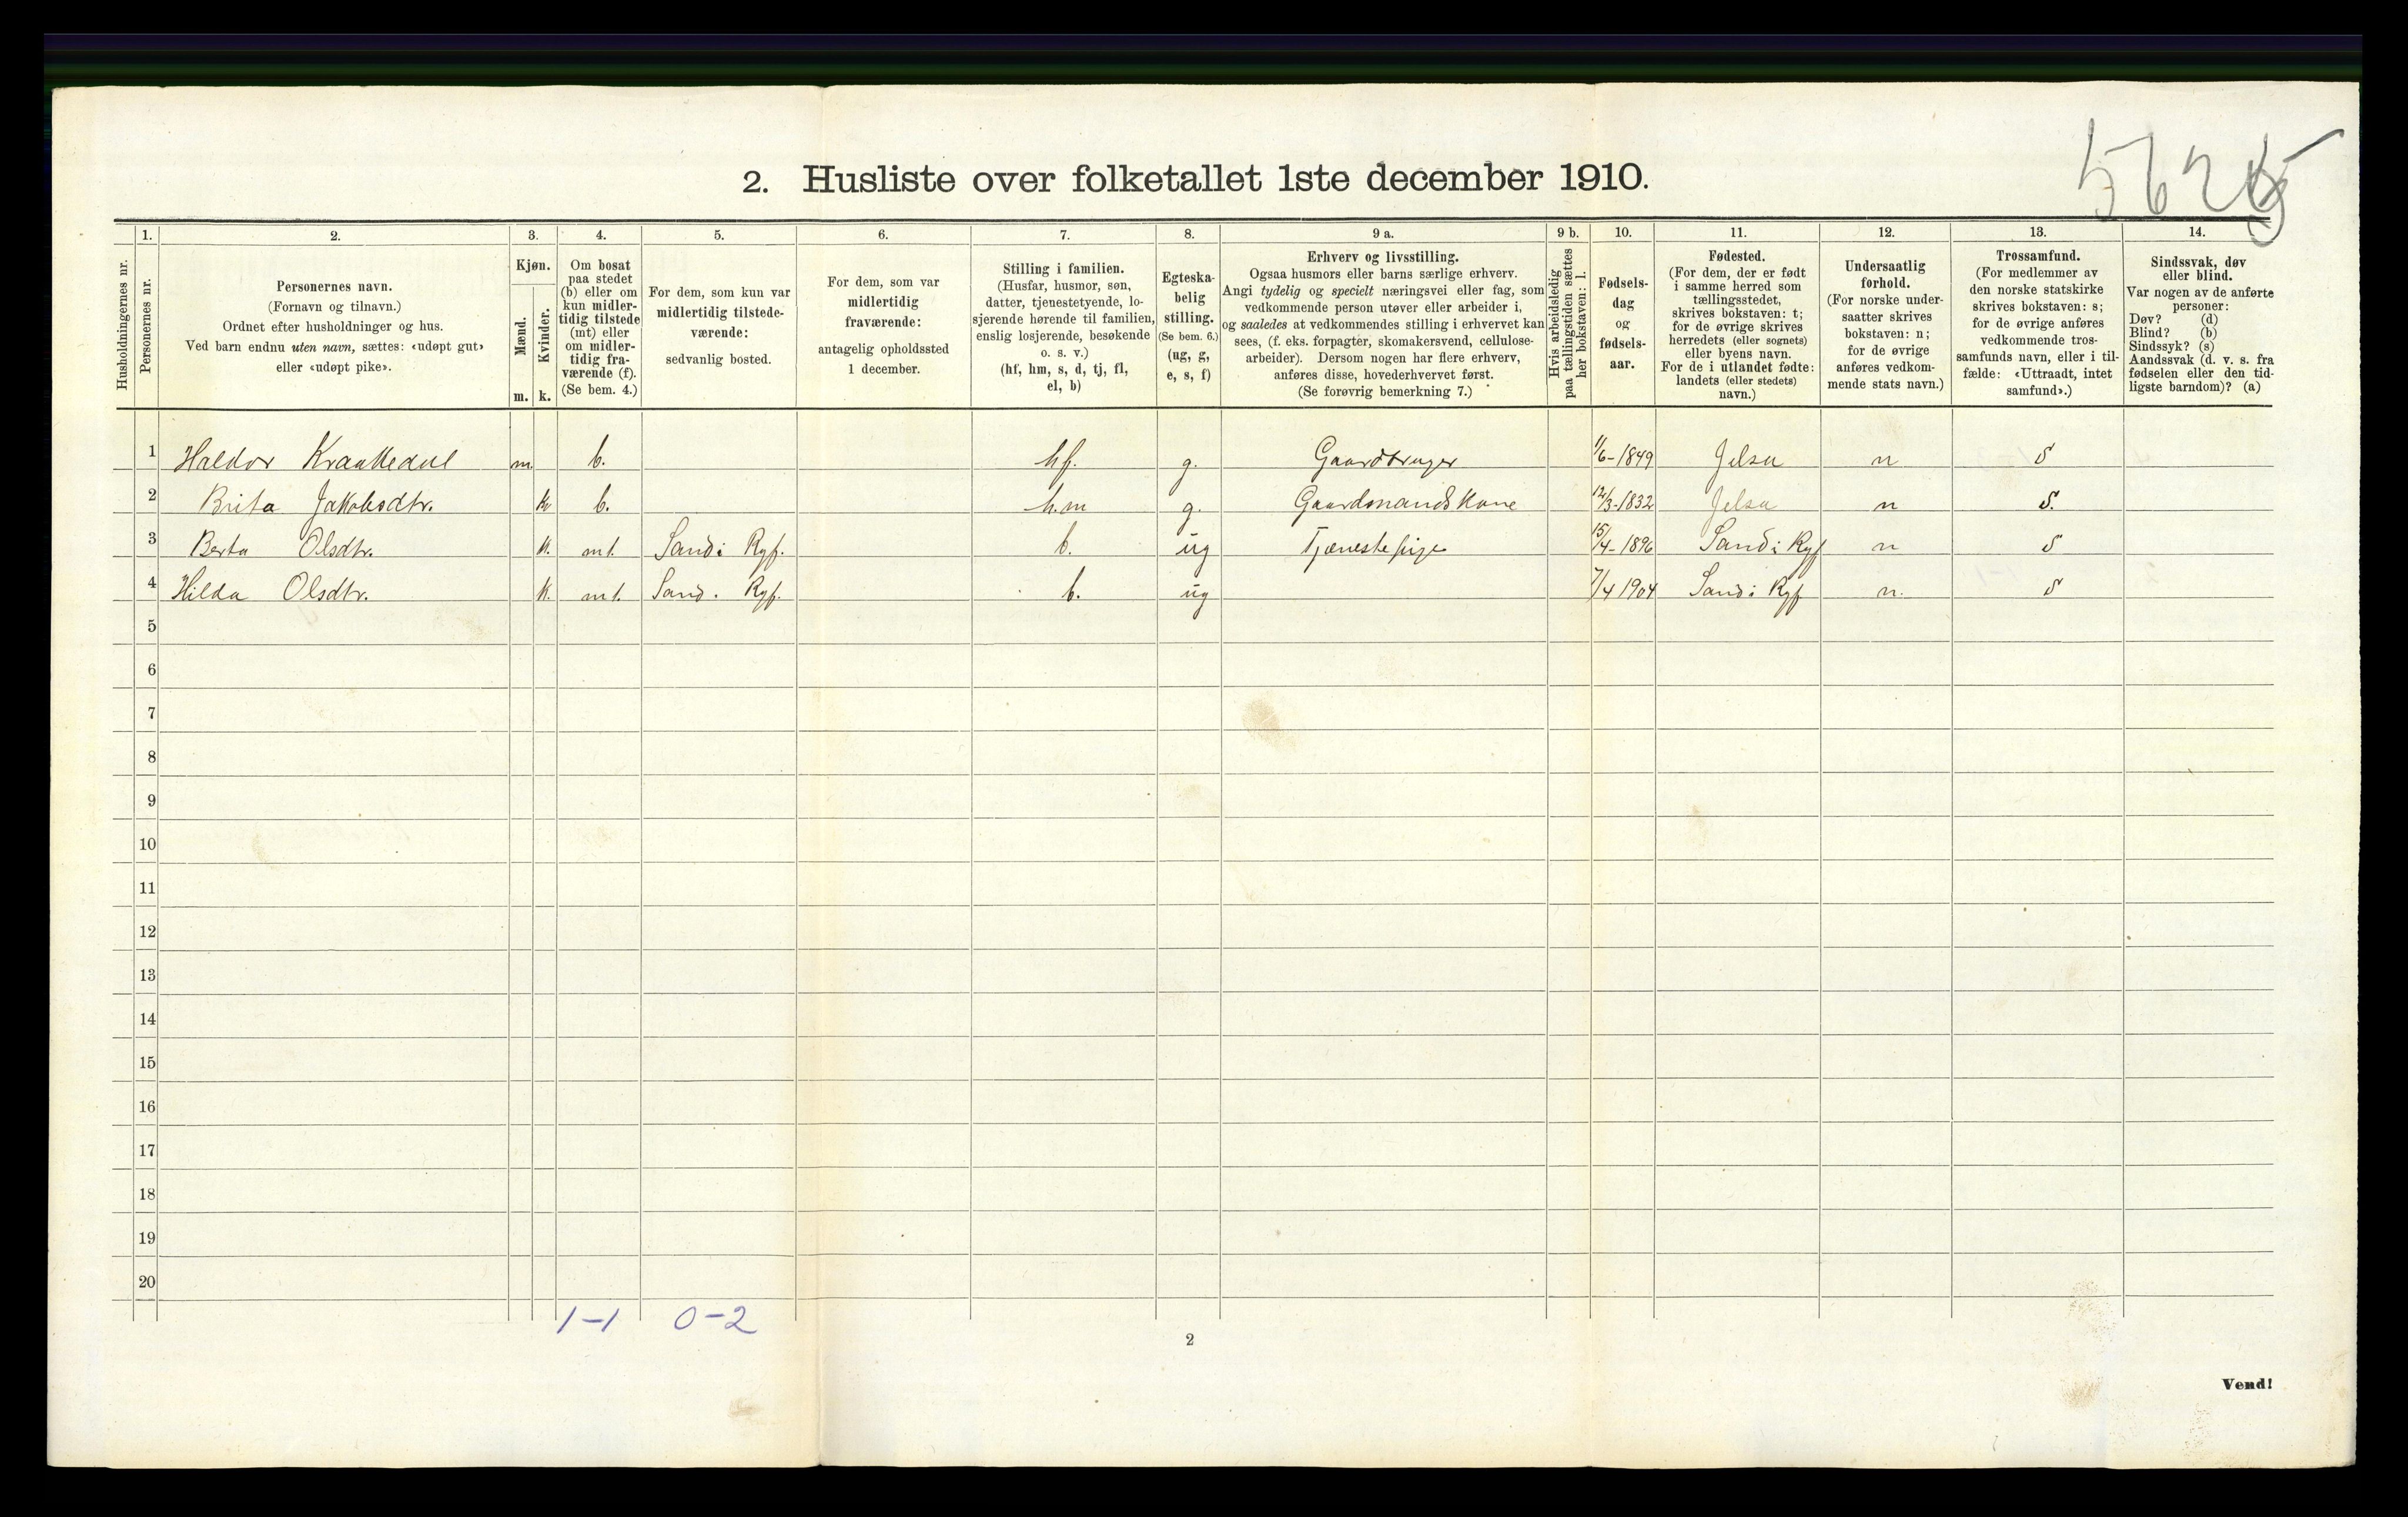 2. Husliste over folketallet 1ste december 1910.
1. 2. 3. 4. 5. 6. 7. 8. 9 a. 9 b. 10. 11. 12. 13. 14.
Husholdningernes nr.
Personernes nr.
Personernes navn.
(Fornavn og tilnavn.)
Ordnet efter husholdninger og hus.
Ved barn endnu uten navn, sættes: «udøpt gut»
eller «udøpt pike».
Kjøn.
Mænd.
Kvinder.
m. k.
Om bosat
paa stedet
(b) eller om
kun midler-
tidig tilstede
(mt) eller
om midler-
tidig fra-
værende (f).
(Se bem. 4.)
For dem, som kun var
midlertidig tilstede-
værende:
sedvanlig bosted.
For dem, som var
midlertidig
fraværende:
antagelig opholdssted
1 december.
Stilling i familien.
(Husfar, husmor, søn,
datter, tjenestetyende, lo-
sjerende hørende til familien,
enslig losjerende, besøkende
o. s. v.)
(hf, hm, s, d, tj, fl,
el, b)
Egteska-
belig
stilling.
(Se bem. 6.)
(ug, g,
e, s, f)
Erhverv og livsstilling.
Ogsaa husmors eller barns særlige erhverv.
Angi tydelig og specielt næringsvei eller fag, som
vedkommende person utøver eller arbeider i,
og saaledes at vedkommendes stilling i erhvervet kan
sees, (f. eks. forpagter, skomakersvend, cellulose-
arbeider). Dersom nogen har flere erhverv,
anføres disse, hovederhvervet først.
(Se forøvrig bemerkning 7.)
Hvis arbeidsledig
paa tællingstiden sættes
her bokstaven: l.
Fødsels-
dag
og
fødsels-
aar.
Fødested.
(For dem, der er født
i samme herred som
tællingsstedet,
skrives bokstaven: t;
for de øvrige skrives
herredets (eller sognets)
eller byens navn.
For de i utlandet fødte:
landets (eller stedets)
navn.)
Undersaatlig
forhold.
(For norske under-
saatter skrives
bokstaven: n;
for de øvrige
anføres vedkom-
mende stats navn.)
Trossamfund.
(For medlemmer av
den norske statskirke
skrives bokstaven: s;
for de øvrige anføres
vedkommende tros-
samfunds navn, eller i til-
fælde: «Uttraadt, intet
samfund».)
Sindssvak, døv
eller blind.
Var nogen av de anførte
personer:
Døv? (d)
Blind? (b)
Sindssyk? (s)
Aandssvak (d. v. s. fra
fødselen eller den tid-
ligste barndom)? (a)
1 Haldor Kraakedal m. b. hf. g. Gaardbruger 1/6-1849 Jelsa n S
2 Brita Jakobsdtr. k b. hm g. Gaardmandskone 12/3-1832 Jelsa n S.
3 Berta Olsdtr. k. mt. Sand i Ryf. b. ug Tjænestepige 15/4-1896 Sand i Ryf n S
4 Hilda Olsdtr. k. mt. Sand. Ryf. b. ug 7/4 1904 Sand i Ryf n. S
5
6
7
8
9
10
11
12
13
14
15
16
17
18
19
20
1-1 0-2
2
Vend!